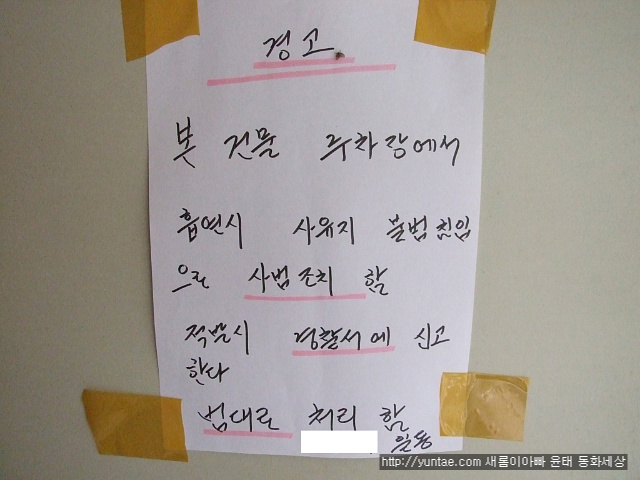 경고
본 건물 주차장에서
흡연시 사유지 불법침입
으로 사법조치 함
적발시 경찰서에 신고
한다
법대로 처리 함
일동
http://yuntae.com 새롬이아빠 윤태 동화세상